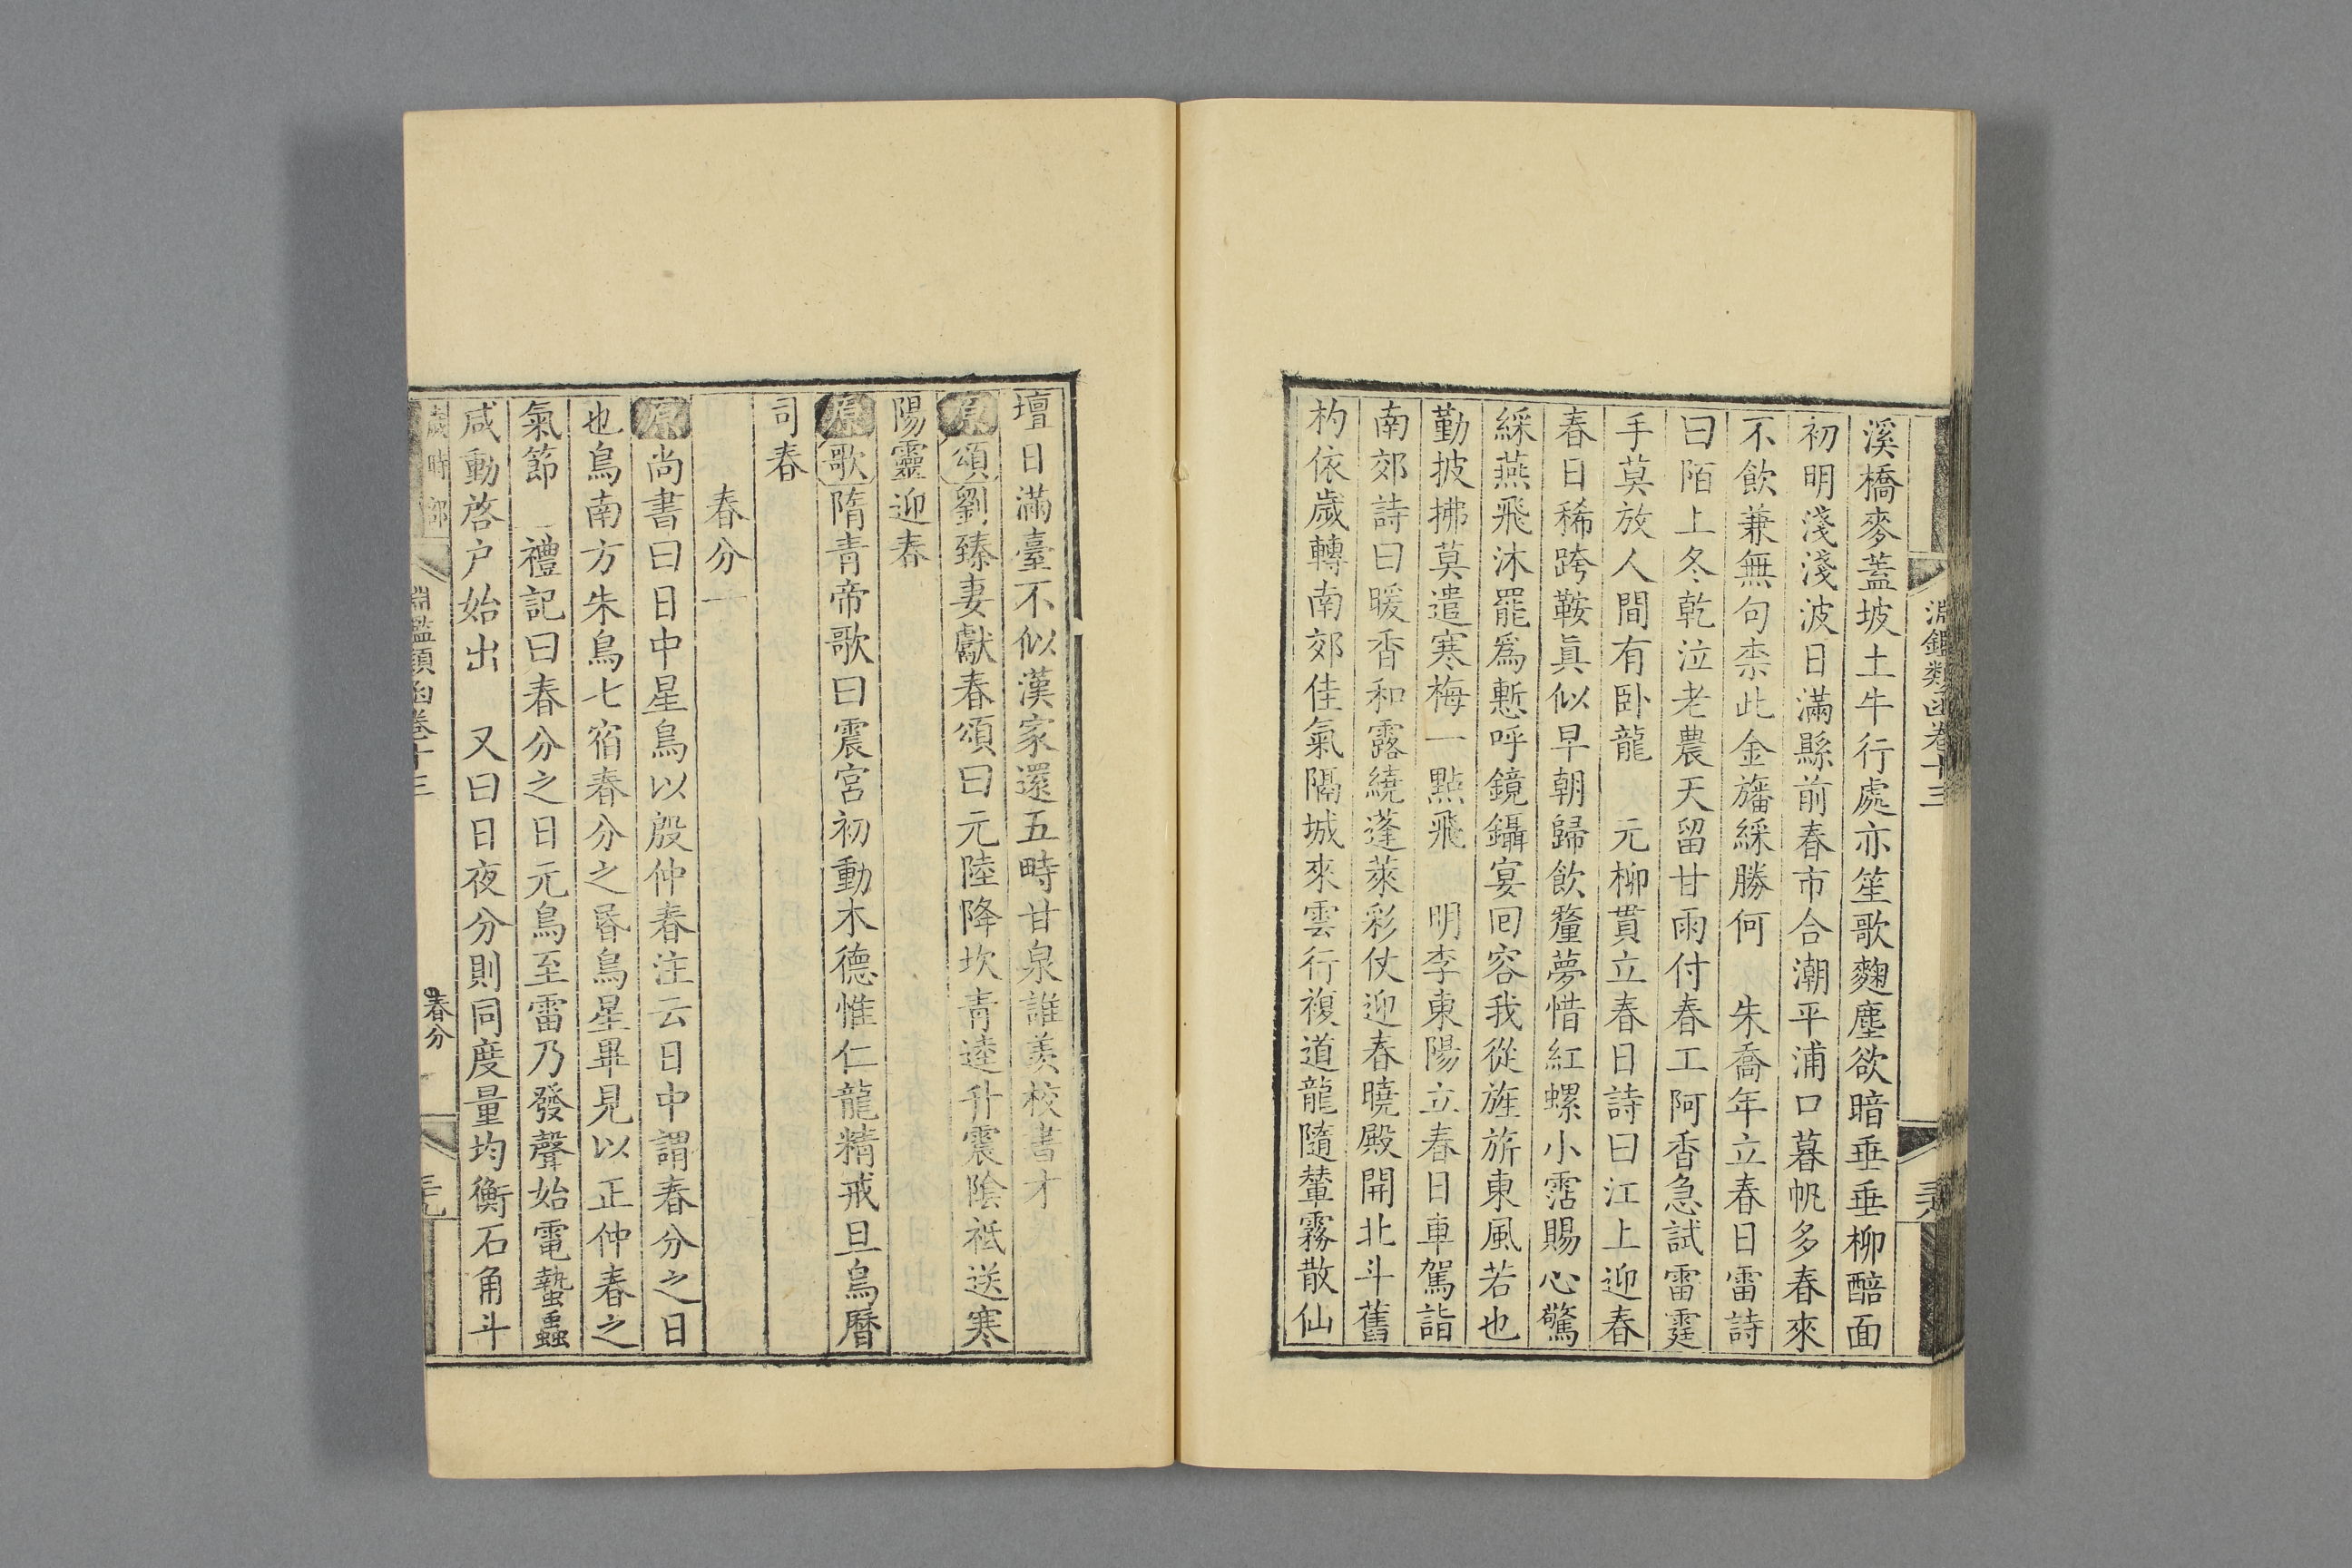 淵鑑類函卷十三
溪橋麥蓋坡土牛行處亦笙歌麴塵欲暗垂垂柳醅面
初明淺淺波日滿縣前春市合潮平浦口暮帆多春來
不飲兼無句柰此金旛綵勝何　朱喬年立春日雷詩
曰陌上冬乾泣老農天留甘雨付春工阿香急試雷霆
手莫放人間有卧龍　元柳貫立春日詩曰江上迎春
春日稀跨鞍真似早朝歸飲釐夢惜紅螺小霑賜心驚
綵燕飛沐罷爲慙呼鏡鑷宴回容我從旌旂東風若也
勤披拂莫遣寒梅一點飛　明李東陽立春日車駕詣
南郊詩曰暖香和露繞蓬萊彩仗迎春曉殿開北斗舊
杓依歲轉南郊佳氣隔城來雲行複道龍隨輦霧散仙
壇日滿臺不似漢家還五畤甘泉誰羡校書才
原頌劉臻妻獻春頌曰元陸降坎青逵升震陰祗送寒
陽靈迎春
原歌隋青帝歌曰震宮初動木德惟仁龍精戒旦鳥曆
司春
春分一
原尚書曰日中星鳥以殷仲春注云日中謂春分之日
也鳥南方朱鳥七宿春分之昏鳥星畢見以正仲春之
氣節　禮記曰春分之日元鳥至雷乃發聲始電蟄蟲
咸動啓户始出　又曰日夜分則同度量均衡石角斗
歲時部
淵鑑類函卷十三
春分